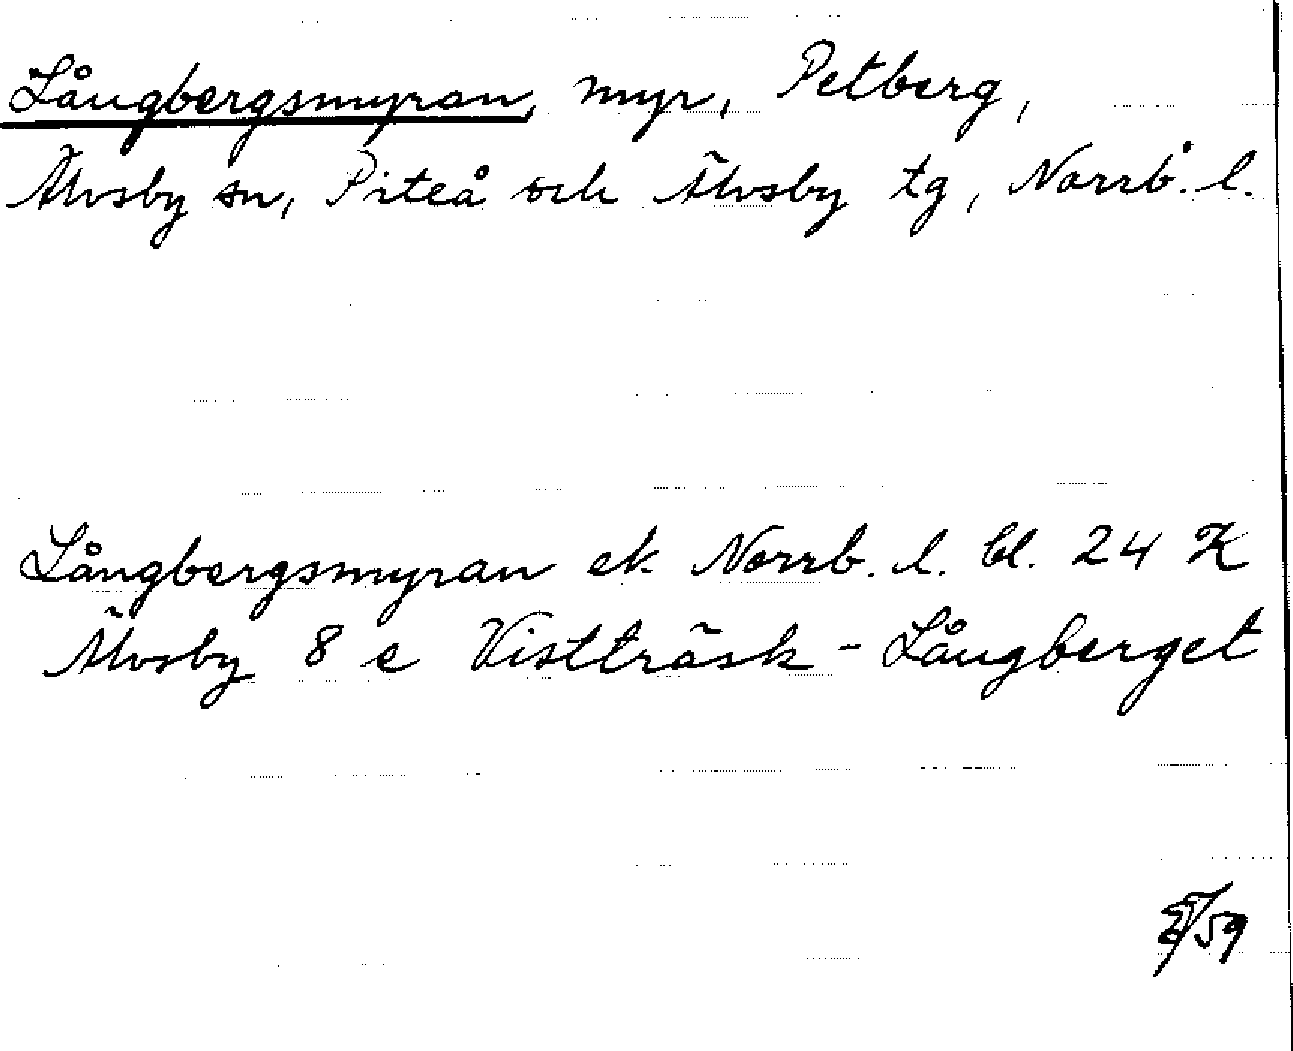 Långbergsmyran, myr, Petberg,
Älvsby sn, Piteå och Älvsby tg, Norrb. l.
Långbergsmyran ek Norrb. l. bl. 24 K
Älvsby 8 e Vistträsk - Långberget
/59